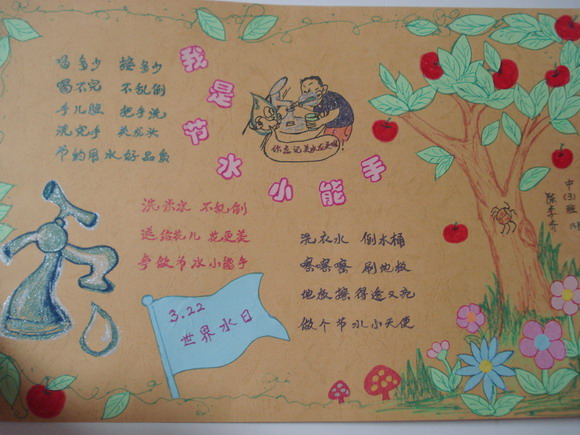 我是节水小能手
喝多少 接多少
喝不完 不乱倒
手儿脏 把手洗
洗完手 关龙头
节约用水好品质
你忘记关水龙头啦
洗米水 不乱倒
送给花儿 花更美
争做节水小能手
3.22
世界水日
洗衣水 倒水桶
嚓嚓嚓 刷地板
地板擦得透又亮
做个节水小天使
中(3)班